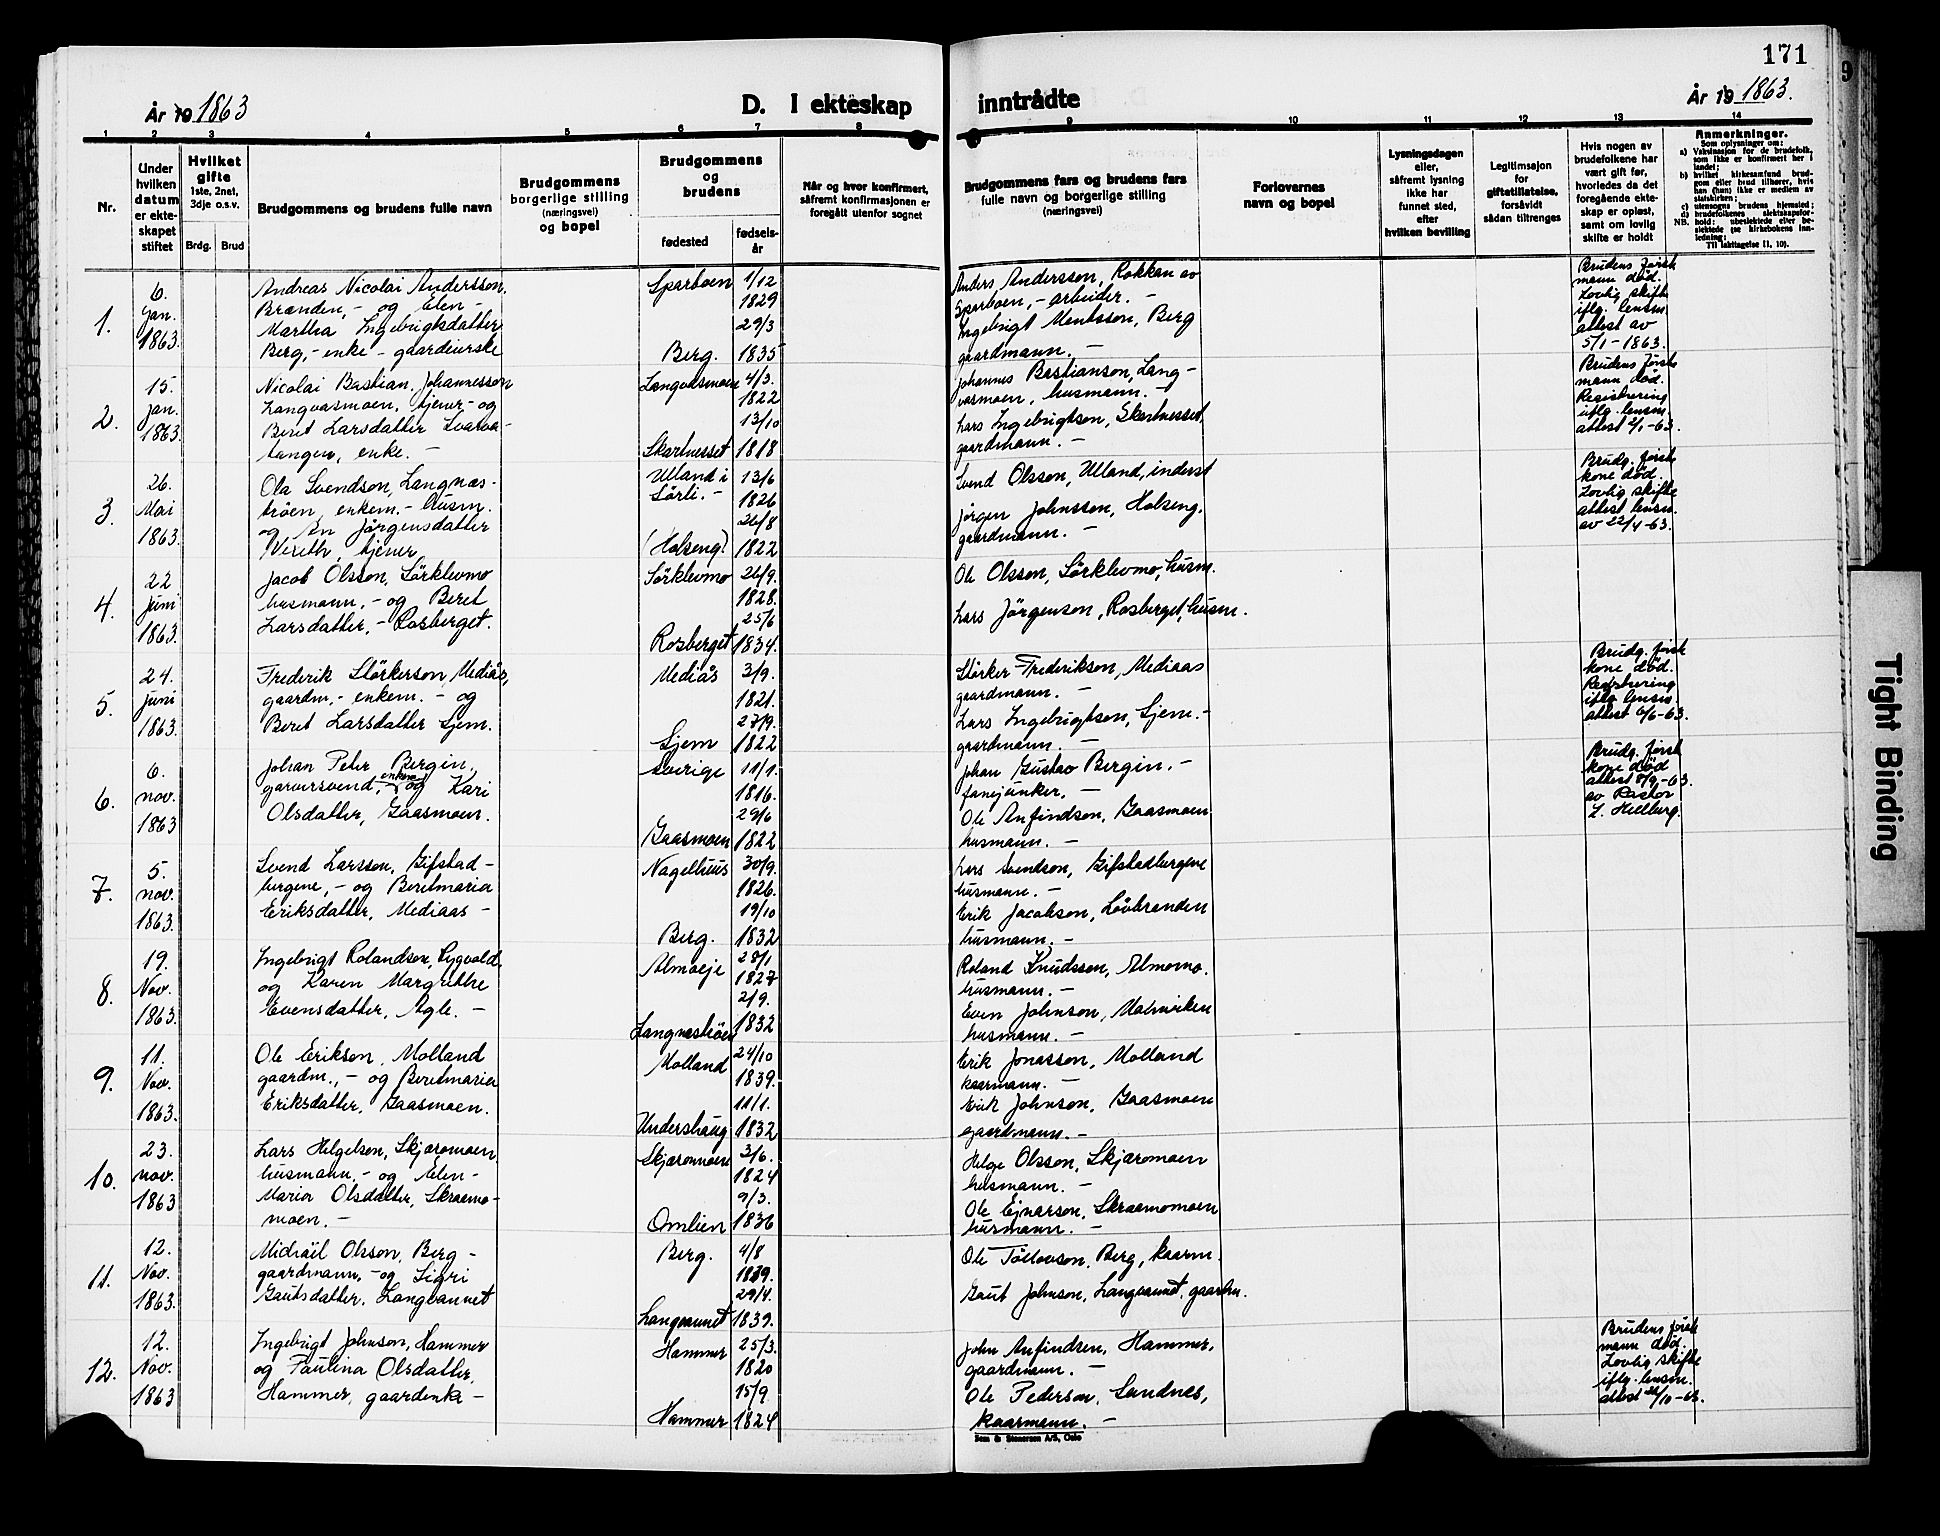 171
År 19 1863
D. I ekteskap inntrådte
År 19 1863.
1 2 3 4 5 6 7 8 9 10 11 12 13 14
Nr.
Under hvilken datum er ekteskapet stiftet
Hvilket gifte
1ste, 2net, 3dje o.s.v.
Brdg. Brud
Brudgommens og brudens fulle navn
Brudgommens borgerlige stilling (næringsvei) og bopel
Brudgommens og brudens
fødested
fødselsår
Når og hvor konfirmert, såfremt konfirmasjonen er foregått utenfor sognet
Brudgommens fars og brudens fars fulle navn og borgerlige stilling (næringsvei)
Forlovernes navn og bopel
Lysningsdagen eller, såfremt lysning ikke har funnet sted, efter hvilken bevilling
Legitimasjon for giftetillatelse, forsåvidt sådan tiltrenges
Hvis nogen av brudefolkene har vært gift før, hvorledes da det foregående ekteskap er opløst, samt om lovlig skifte er holdt
Anmerkninger.
Som oplysninger om:
a) Vaksinasjon for de brudefolk, som ikke er konfirmert her i landet;
b) hvilket kirkesamfund brudgom eller brud tilhører, hvis han (hun) ikke er medlem av statskirken;
c) utensogns brudens hjemsted;
d) brudefolkenes slektskapsforhold: ubeslektede eller beslektede (se kirkebokens innledning;
NB. Til iakttagelse (1, 10).
1.
6. Jan. 1863.
Andreas Nicolai Andersson,
Brænden, - og Elen -
Martha Ingebrigtsdatter
Berg, - enke - gaardeierske
Sparboen 1/12 1829
Berg. 29/3 1835
Anders Andersson, Rokkan av
Sparboen, - arbeider. -
Ingebrigt Mentsson, Berg
gaardmann. -
Brudens først
mann død.
Lovlig skifte
iflg. lensm.
attest av
5/1 - 1863.
2.
15. Jan. 1863.
Nicolai Bastian Johannesson
Langvasmoen, tjener - og
Beret Larsdatter
tangen, enke. -
Langvasmoen 4/3. 1822
Skartnesset 13/10 1818
Johannes Bastianson, Lang-
vasmoen, husmann. -
Lars Ingebrigtson, Skartnesset,
gaardmann. -
Brudens først
mann død.
Registrering
iflg. lensm.
attest 2/1 - 63.
3.
26. Mai 1863.
Ola Svendson, Langnæs-
trøen, enkem. - husm.
og An Jørgensdatter
Vereth, tjener
Ulland i Sørli. - 13/6 1826
(Holseng) 26/8 1822
Svend Olsson, Ulland, inderst
Jørgen Johnsson, Holseng,
gaardmann. -
Brudg. først
kone død.
Lovlig skifte
attest lensm.
av 22/4 - 63.
4.
22 Juni 1863.
Jacob Olsson, Sørklevmo
husmann, - og Beret
Larsdatter, - Rosberget.
Sørklevmo 26/9. 1828.
Rosberget 25/6 1834.
Ole Olsson, Sørklevmo, husm.
Lars Jørgenson, Rosberget, husm.
5.
24. Juni 1863.
Frederik Størkerson, Mediås,
gaardm, - enkem. - og
Beret Larsdatter Gjem.
Mediås 3/9. 1821.
Gjem 27/9. 1822
Størker Frederikson, Mediaas
gaardmann. -
Lars Ingebrigtson, Gjem. -
gaardmann. -
Brudg. først
kone død.
Registrering
iflg. lensm.
attest 6/6 - 63.
6.
6. nov. 1863
Johan Peter Bergin,
garversvend, - enkem. og Kari
Olsdatter, Gaasmoen.
Sverige 11/1. 1816.
Gaasmoen 29/6 1822
Johan Gustav Bergin. -
fanejunker, -
Ole Anfindson, Gaasmoen
husmann. -
Brudg. først
kone død
attest 8/9 - 63.
av Pastor
Z. Hellberg.
7.
5. nov. 1863
Svend Larsson, Gifstad-
bergene, - og Beretmaria
Eriksdatter, Mediaas -
Nagelhuus 30/9. 1826.
Berg. 19/10 1832
Lars Svendson, Gifstadbergene
husmann. -
Erik Jacobson, Løvbrenden
husmann. -
8.
19. Nov. 1863.
Ingebrigt Rolandson, Rygvold.
og Karen Margrethe
Evensdatter, Agle. -
Almoeje 28/1 1827
Langnestrøen 2/9. 1832
Roland Knudsson, Almemo.
husmann. -
Even Johnson, Malmviken
husmann. -
9.
11. Nov. 1863.
Ole Erikson, Molland
gaardm., - og Beretmaria
Eriksdatter, Gaasmoen.
Molland 24/10 1839.
Undershaug 11/1. 1832
Erik Jonasson, Molland
kaarmann. -
Erik Johnson, Gaasmoen
gaardmann. -
10.
23. nov. 1863
Lars Helgeson, Skjæromoen,
husmann, - og Elen -
Maria Olsdatter, Skraemo-
moen. -
Skjæromoen 3/6. 1824
Omlien 9/3. 1836
Helge Olsson, Skjæromoen
husmann. -
Ole Ejnarson, Skraemomoen
husmann. -
11.
12. Nov. 1863.
Michael Olsson, Berg -
gaardmann, - og Sigri
Gautsdatter, Langvannet
Berg. 4/8 1839.
Langvannet 29/4. 1839.
Ole Tollevson, Berg, kaarm.
Gaut Johnson, Langvannet, gaardm.
12.
12. Nov. 1863
Ingebrigt Johnson, Hammer
og Paulina Olsdatter,
Hammer, gaardenke -
Hammer 25/3. 1820
Hammer 15/9. 1824
John Anfindsen, Hammer,
gaardmann. -
Ole Pederson, Sandnes,
kaarmann. -
Brudens først
mann død.
Lovlig skifte
iflg. lensm.
Sem & Stenersen A/S, Oslo
Tight Binding
9